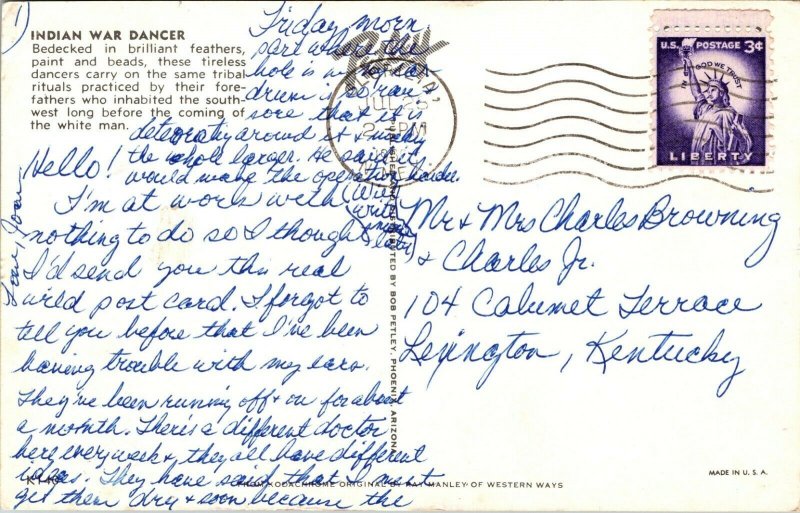 1)
INDIAN WAR DANCER
Bedecked in brilliant feathers,
paint and beads, these tireless
dancers carry on the same tribal
rituals practiced by their fore-
fathers who inhabited the south-
west long before the coming of
the white man.
Hello!
I'm at work with
nothing to do so I thought
I'd send you this real
wild post card. I forgot to
tell you before that I've been
having trouble with my ears.
They've been running off & on for about
a month. There's a different doctor
here every week & they all have different
ideas. They have said that I must
get them dry & soon because the
Friday morn.
part where the
hole is in my ear
drum is so raw &
sore that it is
around it & making
the whole larger. He said it
would make the operation harder.
(Will
write
more
later)
Love, Joan
PM
U.S. POSTAGE 3¢
IN GOD WE TRUST
LIBERTY
Mr & Mrs Charles Browning
& Charles Jr.
104 Calumet Terrace
Lexington, Kentucky
BY BOB PETLEY, PHOENIX, ARIZONA
K140
FROM KODACHROME ORIGINAL BY RAY MANLEY OF WESTERN WAYS
MADE IN U. S. A.